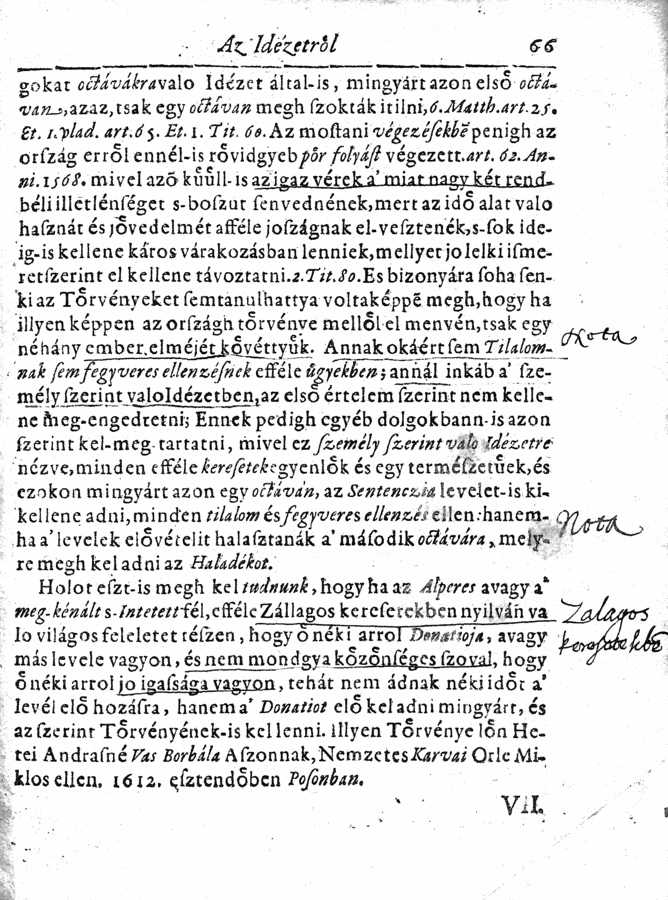 Az Idézetrȍl 66
gokat octávákravalo Idézet által-is, mingyárt azon elsȍ octá-
van, azaz, tsak egy octávan megh ſzokták itilni, 6. Matth. art. 25.
Et. 1. vlad. art. 65. Et. 1. Tit. 60. Az moſtani végezéſekbē penigh az
orſzág errȍl ennél-is rȍvidgyeb pȍr folyáſt végezett. art. 62. An-
ni. 1568. mivel azō kűűll-is az igaz vérek a' miat nagy két rend-
béli illetlénſéget s-boſzut ſenvednének, mert az idȍ alat valo
haſznát és jȍvedelmét afféle joſzágnak el-veſztenék, s-ſok ide-
ig-is kellene káros várakozásban lenniek, mellyet jo lelki iſme-
retſzerint el kellene távoztatni. 2. Tit. 80. Es bizonyára ſoha ſen-
ki az Tȍrvényeket ſemtanulhattya voltaképpē megh, hogy ha
illyen képpen az orſzágh tȍrvénye mellȍl el menvén, tsak egy
néhány ember elméjét kȍvéttyűk. Annak okáért ſem Tilalom-
nak ſem fegyveres ellenzéſnek efféle űgyekben; annál inkáb a' ſze-
mély ſzerint valo Idézetben, az elsȍ értelem ſzerint nem kelle-
ne meg-engedtetni; Ennek pedigh egyéb dolgokbann-is azon
ſzerint kel-meg-tartatni, mivel ez ſzemély ſzerint valo Idézetre
nézve, minden efféle kereſetek egyenlȍk és egy termeſzetűek, és
ezokon mingyárt azon egy octáván, az Sentenczia levelet-is ki-
kellene adni, minden tilalom és fegyveres ellenzés ellen: hanem-
ha a' levelek elȍvételit halaſztanák a' máſodik octávára, mely-
re megh kel adni az Haladékot.
Holot eſzt-is megh kel tudnunk, hogy ha az Alperes avagy a'
meg-kénált s-Intetett fél, efféle Zállagos kereſetekben nyilván va
lo világos feleletet téſzen, hogy ȍ néki arrol Donatioja, avagy
más levele vagyon, és nem mondgya kȍzȍnſéges ſzoval, hogy
ȍ néki arrol jo igaſsága vagyon, tehát nem ádnak néki idȍt a'
levél elȍ hozáſra, hanem a' Donatiot elȍ kel adni mingyárt, és
az ſzerint Tȍrvényének-is kel lenni. illyen Tȍrvénye lȍn He-
tei Andraſné Vas Borbála Aſzonnak, Nemzetes Karvai Orle Mi-
klos ellen. 1612. eſztendȍben Poſonban.
VII.
Nota
Nota
Zalagos
keresetekbē